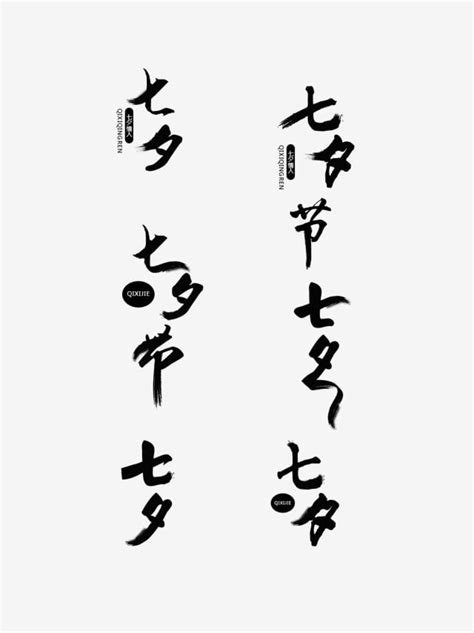 七夕
七夕情人
QIXIQINGREN
七夕节
QIXIJIE
七夕
七夕节
七夕情人
QIXIQINGREN
七夕
七夕
QIXIJIE